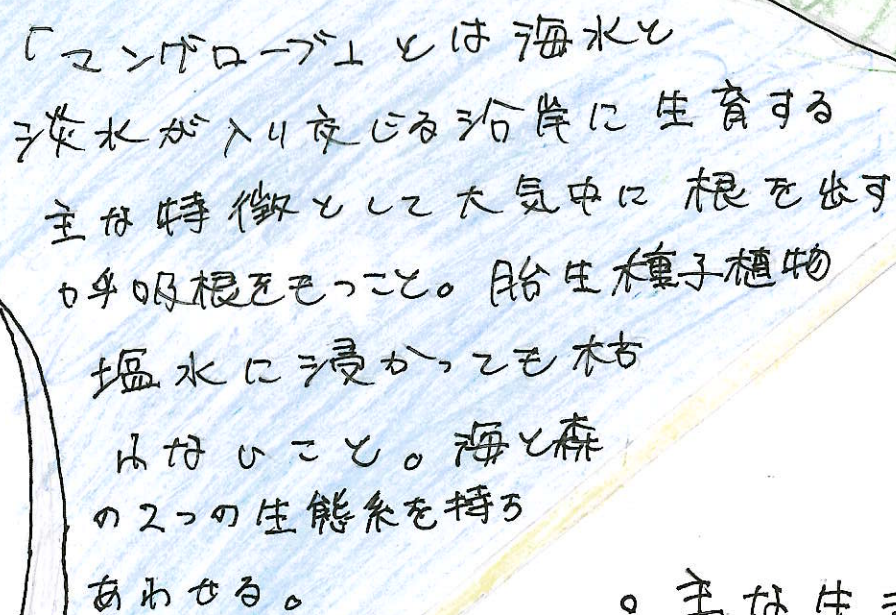 「マングローブ」とは海水と
淡水が入り交じる沿岸に生育する
主な特徴として大気中に根を出す
呼吸根をもつこと。胎生種子植物
塩水に浸かっても枯
れないこと。海と森
の2つの生態系を持ち
あわせる。
。主な生